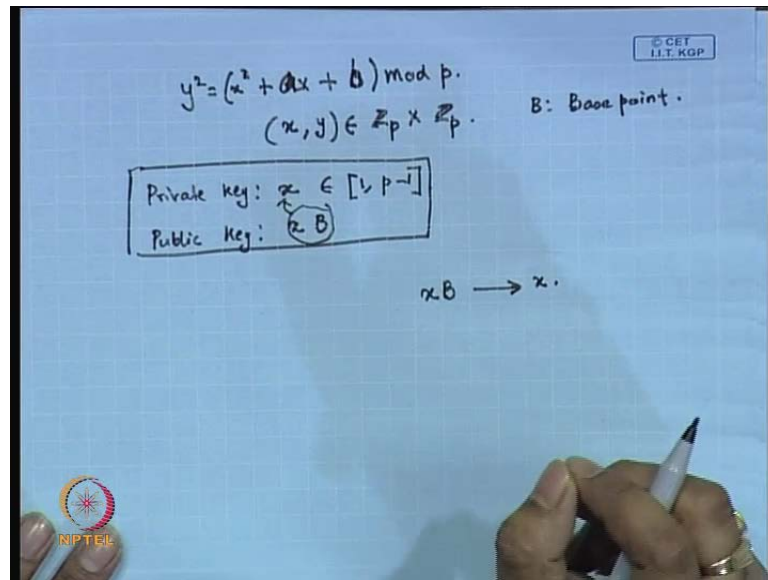 © CET
I.I.T. KGP
y² = (x² + ax + b) mod p.
(x, y) ∈ ℤp × ℤp.
B: Base point.
Private Key: x ∈ [1, p-1]
Public Key: x B
xB → x.
NPTEL